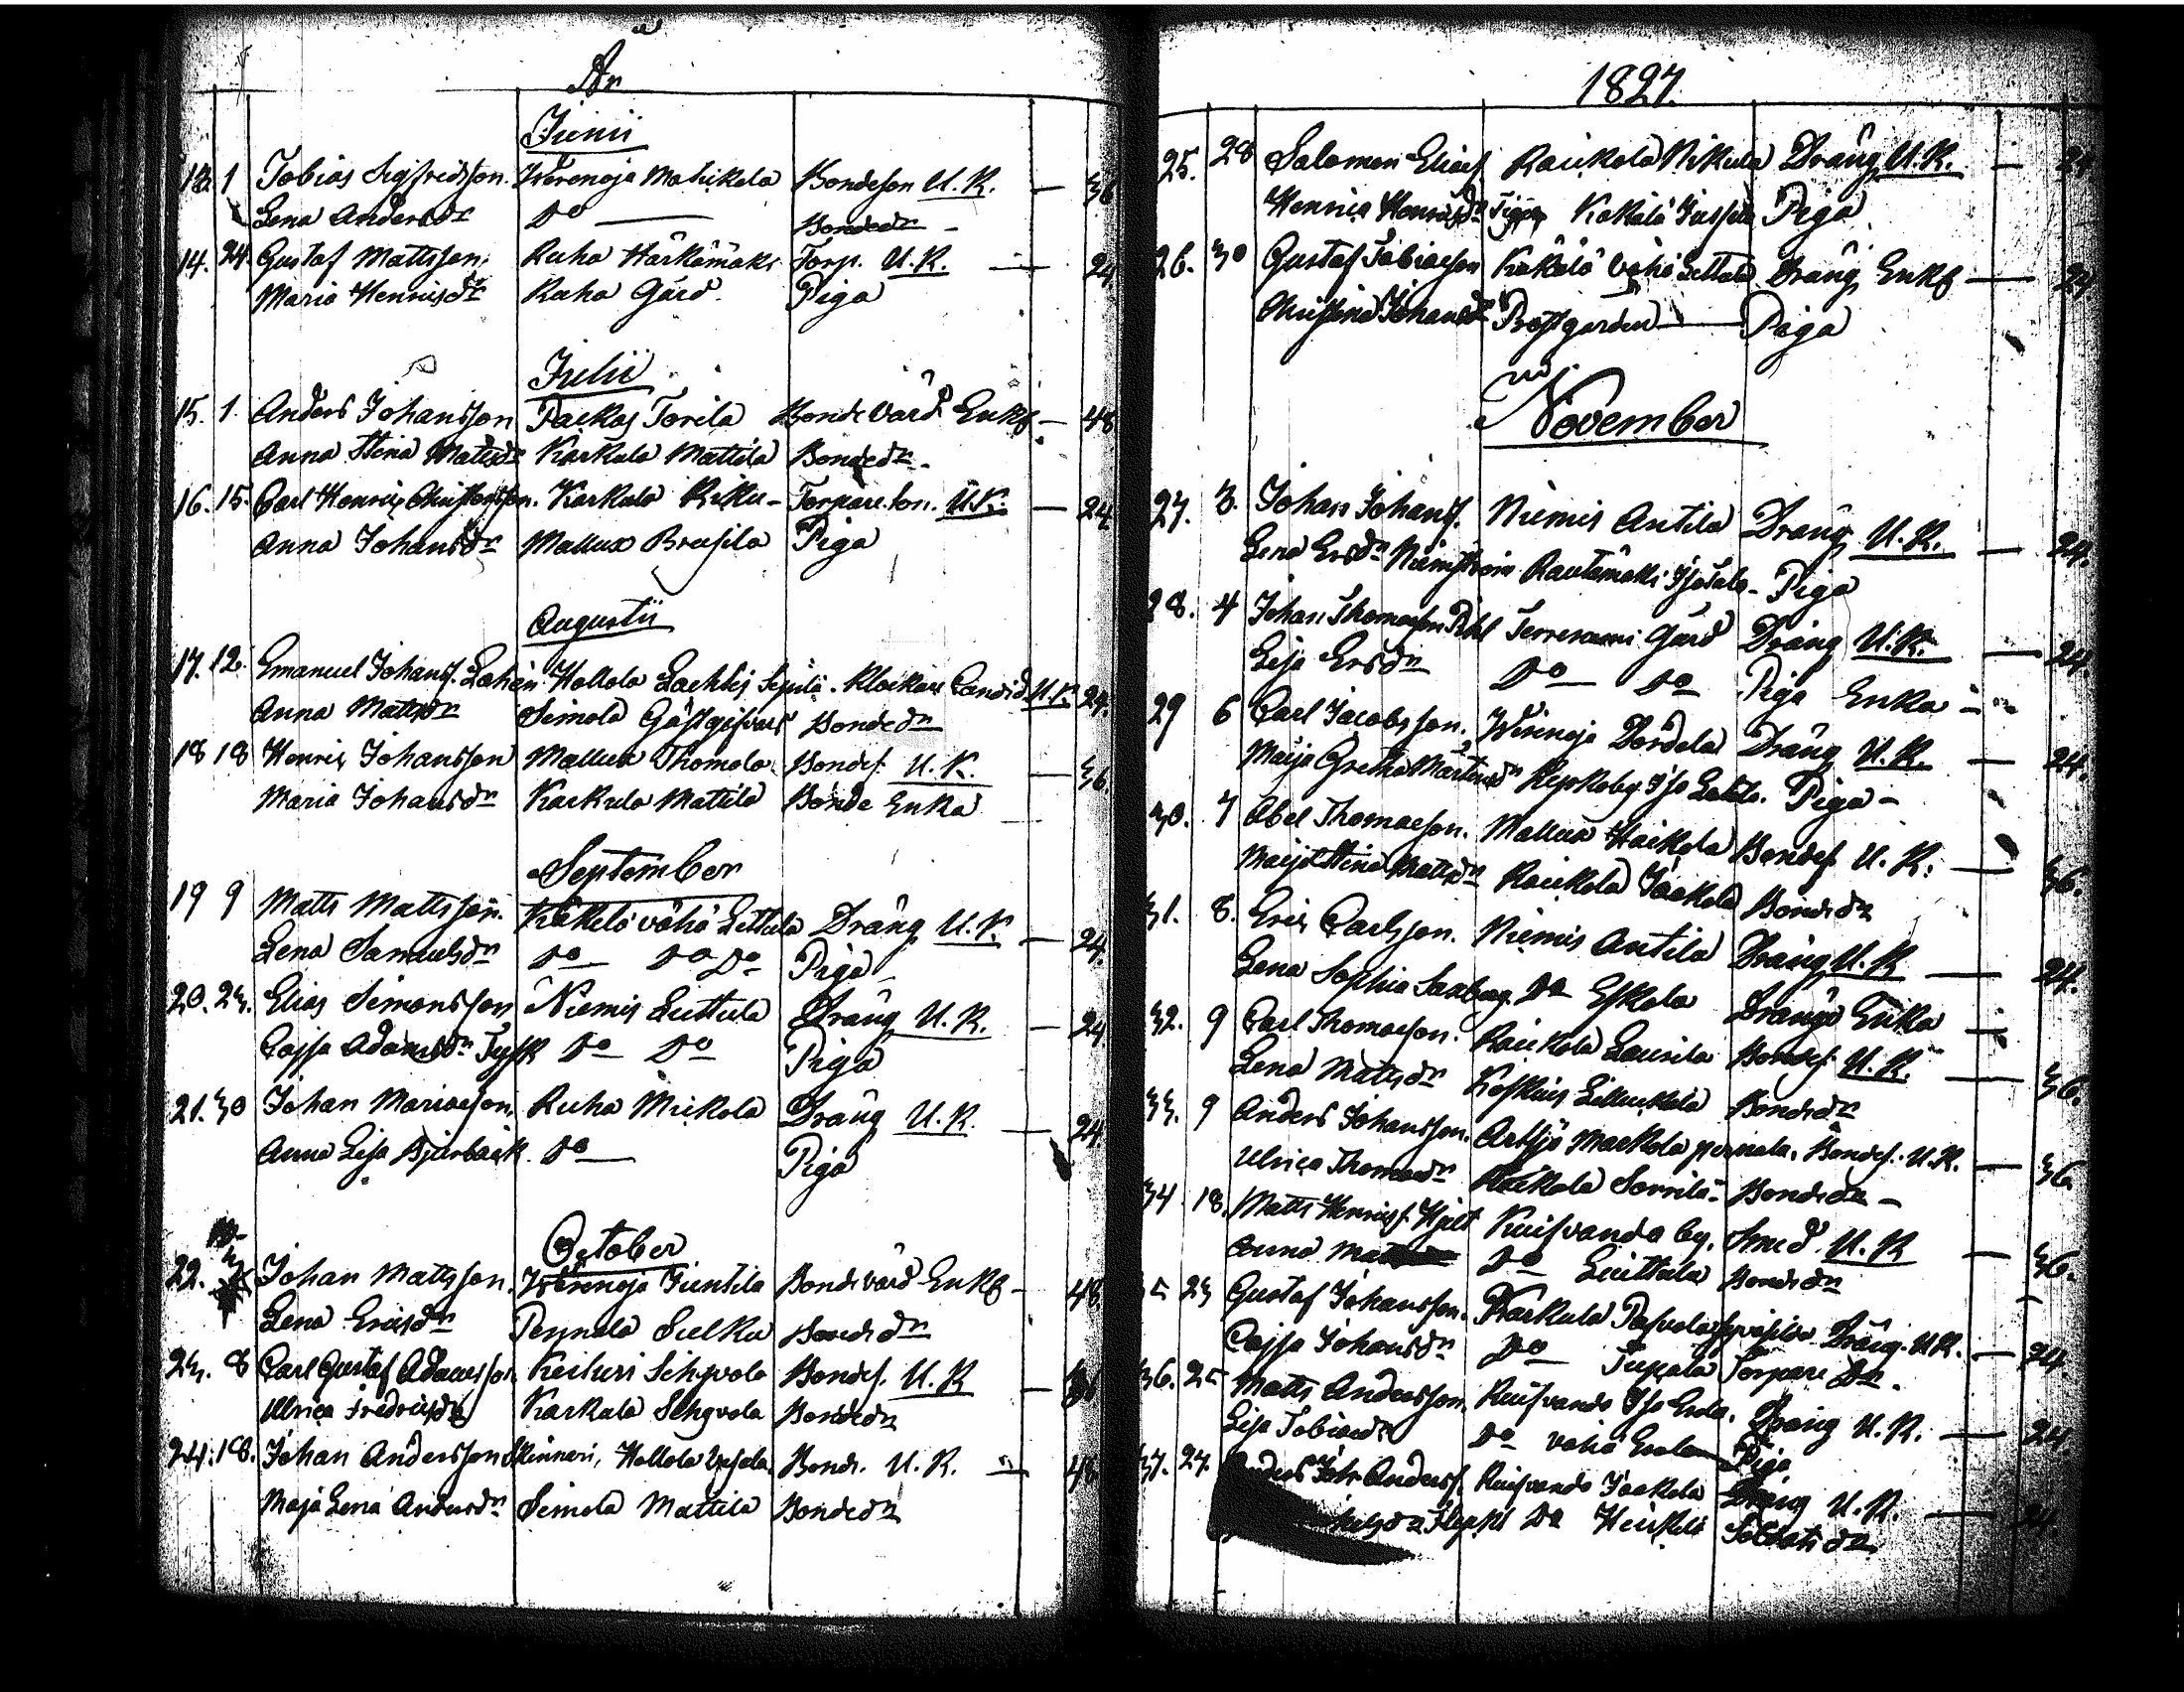 År
Junii
13. 1 Tobias Sigfridsson. Werenoja Matikola Bondeson U.K. — 36
Lena Andersdr Do — Bondedr
14. 24. Gustaf Mattsson. Ruha Härkämäki Torp. U.K. — 24
Maria Henricsdr Ruha Gård. Piga
Julii
15. 1. Anders Johansson Packas Torila Bonde värd Enkl — 48
Anna Stina Mattsdr Karkula Mattila Bondedr.
16. 15. Carl Henric Christersson. Karkula Riku- Torpare son. U.K. — 24
Anna Johansdr Mallux Brusila Piga
Augustii
17. 12. Emanuel Johanss. Hollola Lachtis Seppilä. Klockare Candid. U.K. 24.
Anna Mattsdr Simola Gästgifvars Bondedr
18 18 Henric Johansson Mallux Thomola Bondes. U.K. — 36.
Maria Johansdr Karkula Mattila Bonde Enka
September
19 9 Matts Mattsson. Käkelä vähä Lettula Dräng U.K. — 24.
Lena Samuelsdr Do Do Do Piga
20. 23. Elias Simonsson Niemis Luttula Dräng U.K. — 24
Cajsa Adamsdr Tysk Do Do Piga
21. 30 Johan Mariaeson, Ruha Mickola Dräng U.K. — 24.
Anna Lisa Do — Piga
October
22. Johan Mattsson. Werenoja Juntila Bonde värd Enkl — 48
Lena Ericsdr Pennala Sulku Bondedr
23. 8 Carl Gustaf Adamsson Keituri Sihvola Bondes. U.K. — 36
Ulrica Fredricsdr Karkula Sihvola Bondedr
24. 18. Johan Andersson Hollola Bonde. U.K. — 48
Maja Lena Andersdr Simola Mattila Bondedr
1827.
25. 28 Salomon Eliaes Raikola Nikula Dräng U.K. — 24
Henrica Henricsdr Käkelä Jussila Piga
26. 30 Gustaf Tobiaeson Käkälä Vähä Lettula Dräng Enkl — 24
Christina Johansdr Prostgården — Piga
November
27. 3. Johan Johanss. Niemis Antila Dräng U.K. — 24.
Lena Ersdr Rautamäki Isotalo - Piga
28. 4 Johan Thomaeson Gård Dräng U.K. — 24.
Lisa Ersdr Do Do Piga Enka
29 6 Carl Jacobsson. Werenoja Dräng U.K. — 24.
Maija Greta Martinsdr Iso Piga -
30. 7 Abel Thomaeson. Mallux Haikola Bondes. U.K. — 36.
Maija Stina Mattsdr Raikola Jaakola Bondedr
31. 8. Eric Carlsson. Niemis Antila Dräng U.K. — 24.
Lena Sophia Saxberg Do Eskola Drängs Enka
32. 9 Carl Thomaeson. Raikola Laurila Bondes. U.K. — 36.
Lena Mattsdr Koskuis Bondedr
33. 9 Anders Johansson. Artsjö Markola Bondes. U.K. — 36
Ulrica Thomaedr Sorrila Bondedr -
34 18. Matts Henricss. Hjelt Kuifvanda by. Smed U.K. — 36.
Anna Do Luttula Bondedr
35 23 Gustaf Johansson. Karkula Dräng. U.K. — 24
Cajsa Johansdr Do Tupala Torpare Dr.
36. 25 Matts Andersson. Kuifvanda Iso Erola. Dräng U.K. — 24.
Lisa Tobiaedr Do Vähä Erola Piga
37. 27. Anders Joh. Anderss. Kuifvanda Jaakola Dräng U.K. — 24
Do Heikilä Soldats dr.